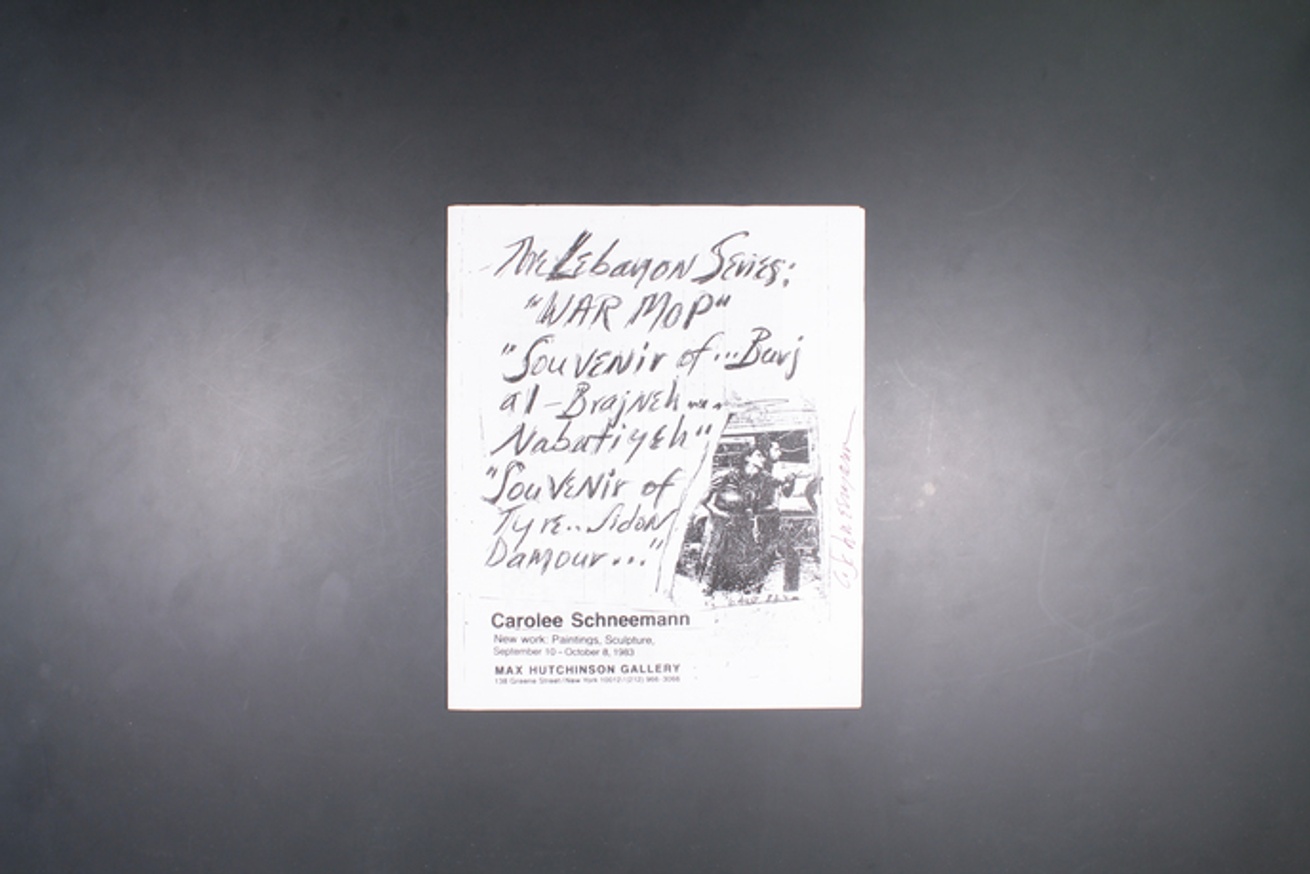 The Lebanon Series:
"WAR MOP"
"Souvenir of...Burj
al-Brajneh...
Nabatiyeh"
"Souvenir of
Tyre..Sidon
Damour..."
Carolee Schneemann
New work: Paintings, Sculpture,
September 10 – October 8, 1983
MAX HUTCHINSON GALLERY
138 Greene Street/New York 10012/(212) 966-3066